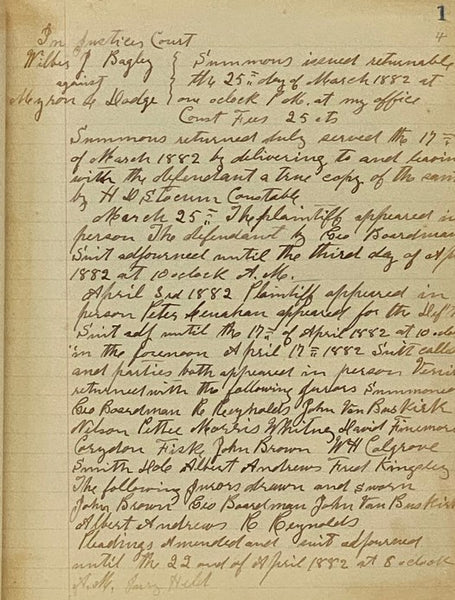 1
4
In Justices Court
Wilber J Bagley { Summons issued returnable
against { the 25" day of March 1882 at
Myron G Dodge { one oclock P.M. at my office
Const Fees 25 cts
Summons returned duly served the 17"
of March 1882 by delivering to and leavin
with the defendant a true copy of the sam
by H D Slocum Constable
March 25" The plaintiff appeared in
person The defendant by Geo Boardman
Suit adjourned until the third day of Ap
1882 at 10 oclock A.M.
April 3rd 1882 Plaintiff appeared in
person Peter appeared for the Deft
Suit adj until the 17" of April 1882 at 10 oclo
in the forenoon April 17" 1882 Suit called
and parties both appeared in person Venire
returned with the following Jurors Summoned
Geo Boardman R Reynolds John Van Buskirk
Nelson Pettee Morris Whitney David Finemore
Corydon Fisk John Brown W H Colgrove
Smith Albert Andrews Fred Kingsley
The following Jurors drawn and sworn
John Brown Geo Boardman John Van Buskirk
Albert Andrews R Reynolds
Pleadings Amended and suit adjourned
until the 22 ond of April 1882 at 8 oclock
A.M. Jury Held